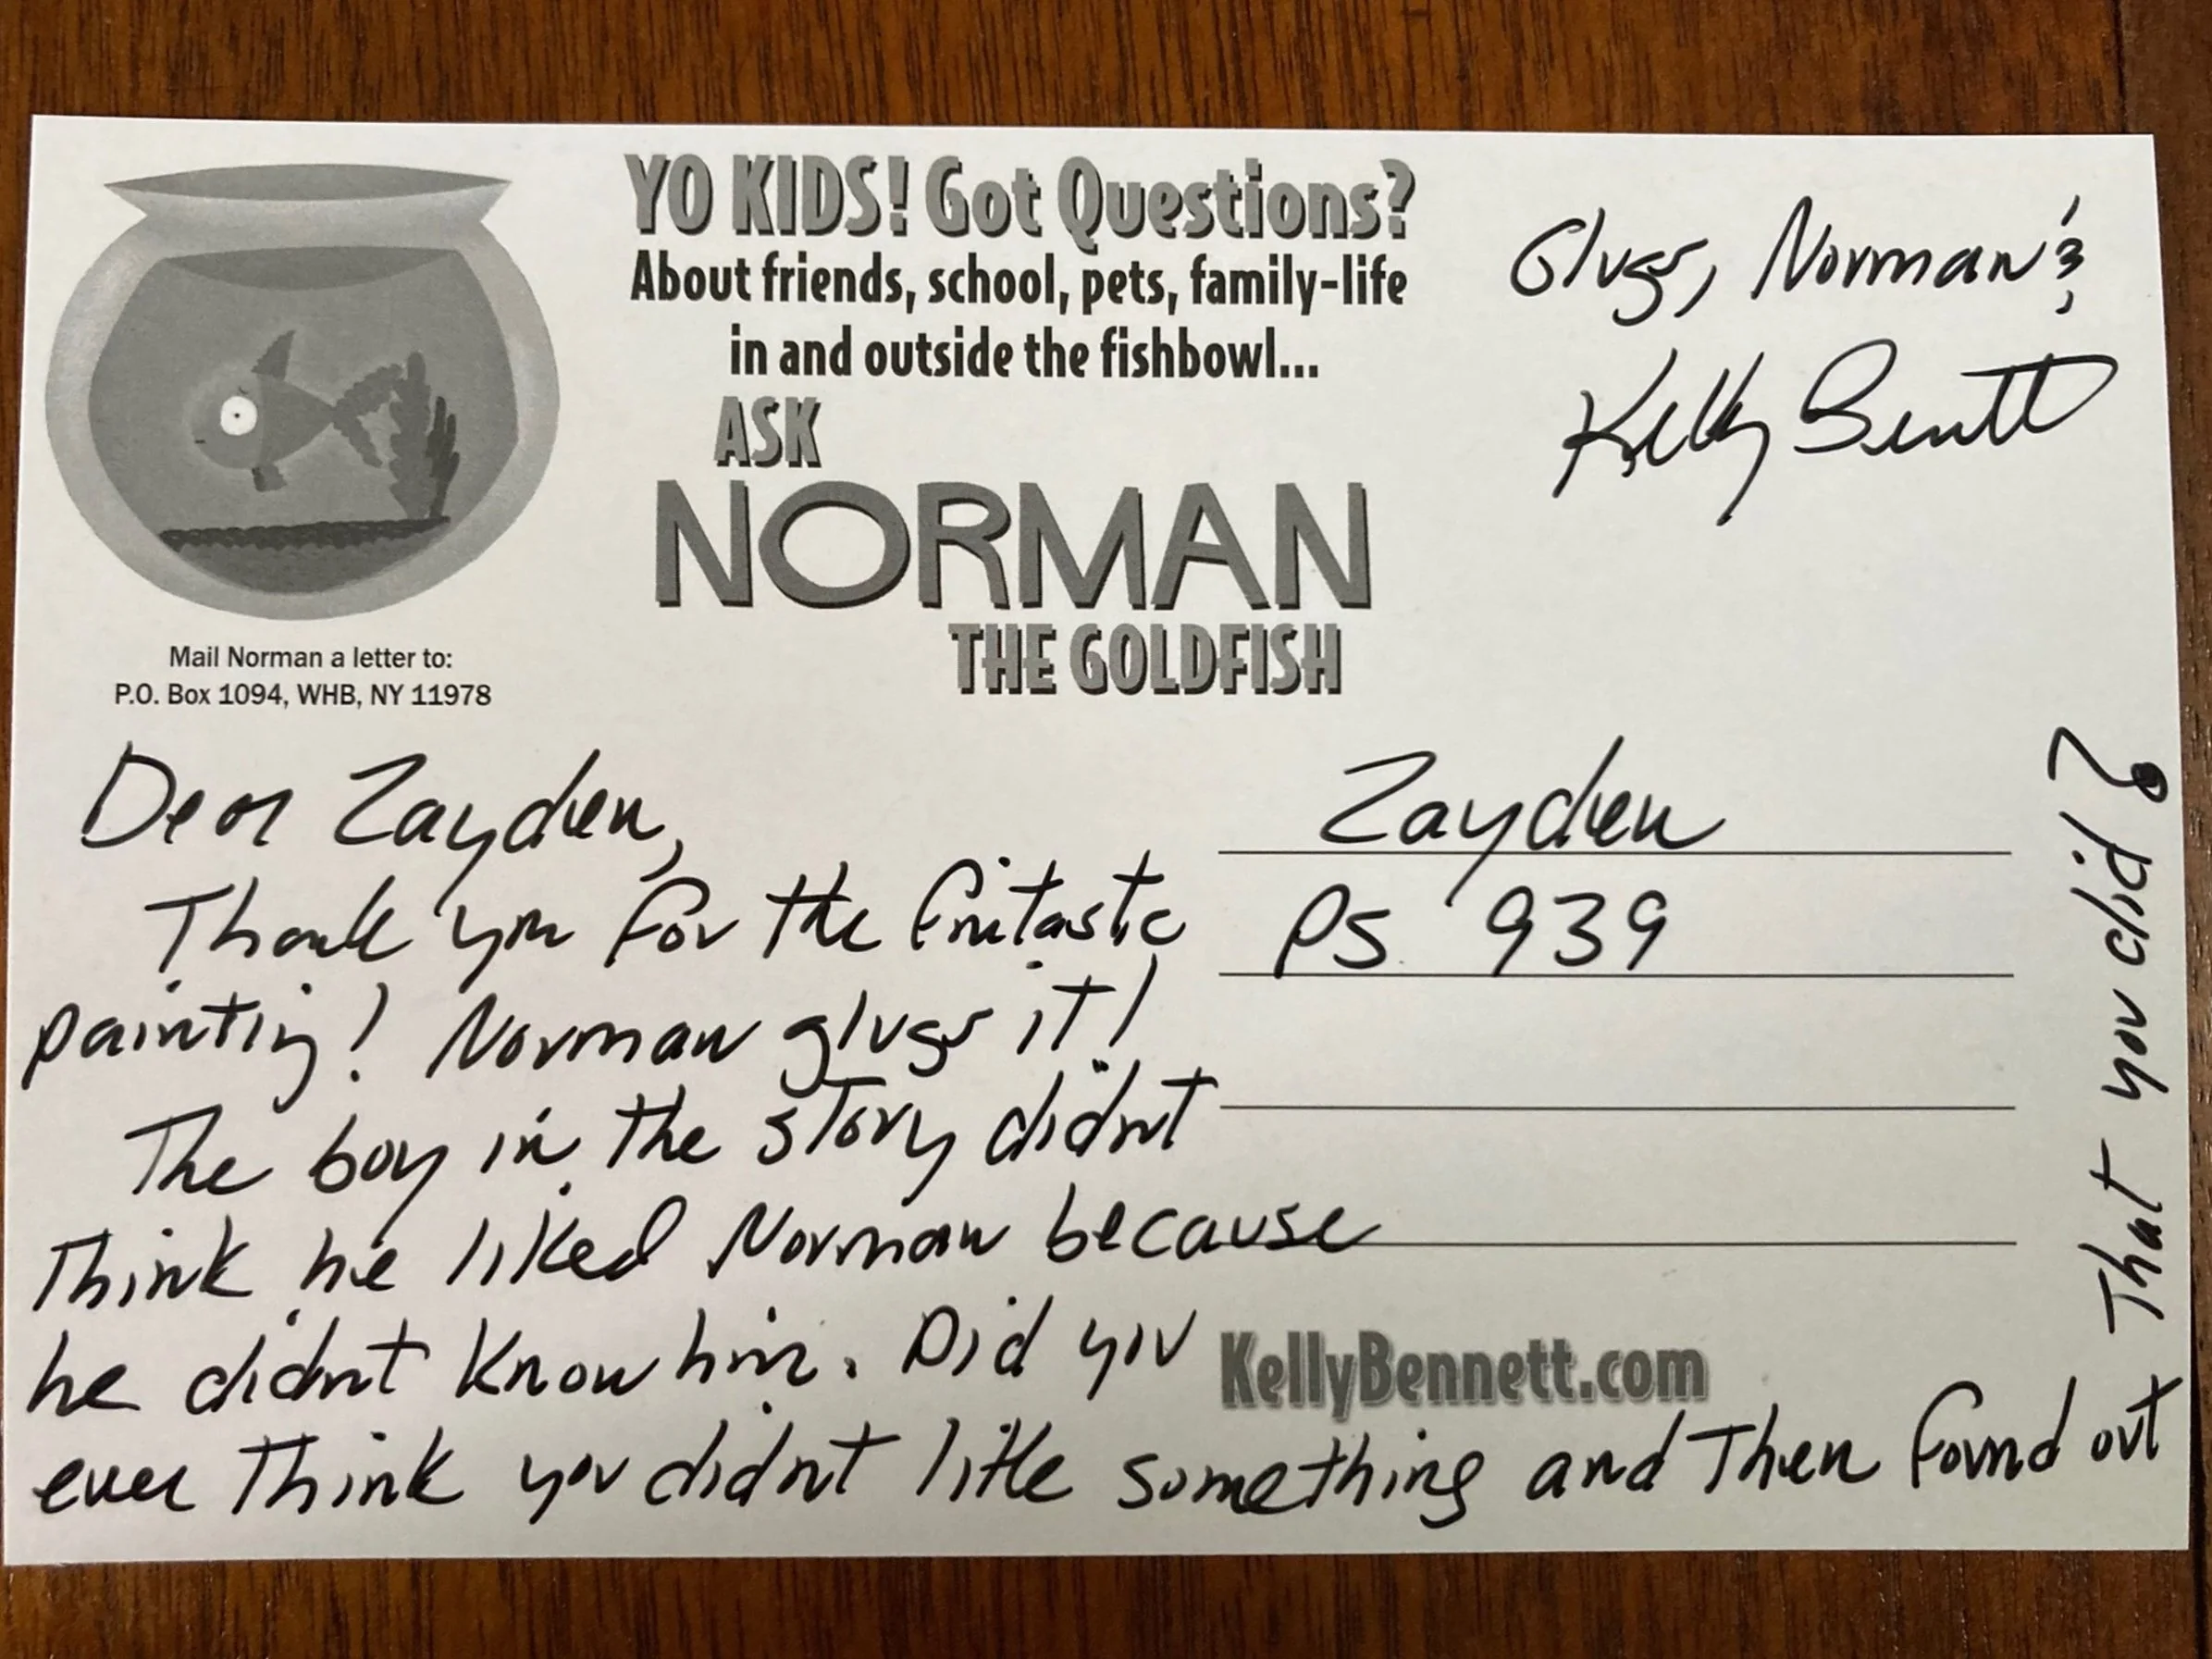 YO KIDS! Got Questions?
About friends, school, pets, family-life
in and outside the fishbowl...
ASK
NORMAN
THE GOLDFISH
Mail Norman a letter to:
P.O. Box 1094, WHB, NY 11978
Glugs, Norman &
Kelly Bennett
Zayden
PS 939
Dear Zayden,
Thank you for the fintastic
painting! Norman glugs it!
The boy in the story didn't
Think he liked Norman because
he didn't know him. Did you
ever Think you didn't like something and Then found out
That you did?
KellyBennett.com